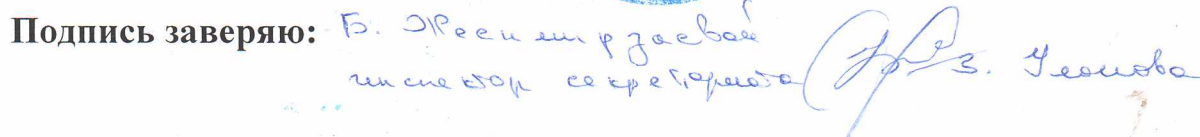 Подпись заверяю: Б. Жеенмурзаевой
инспектор секретариата З. Усонова